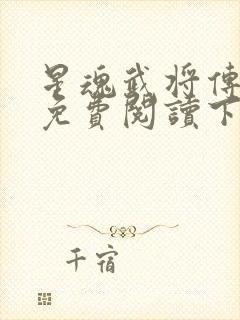 星魂武将傳
免費閱讀下
千宿